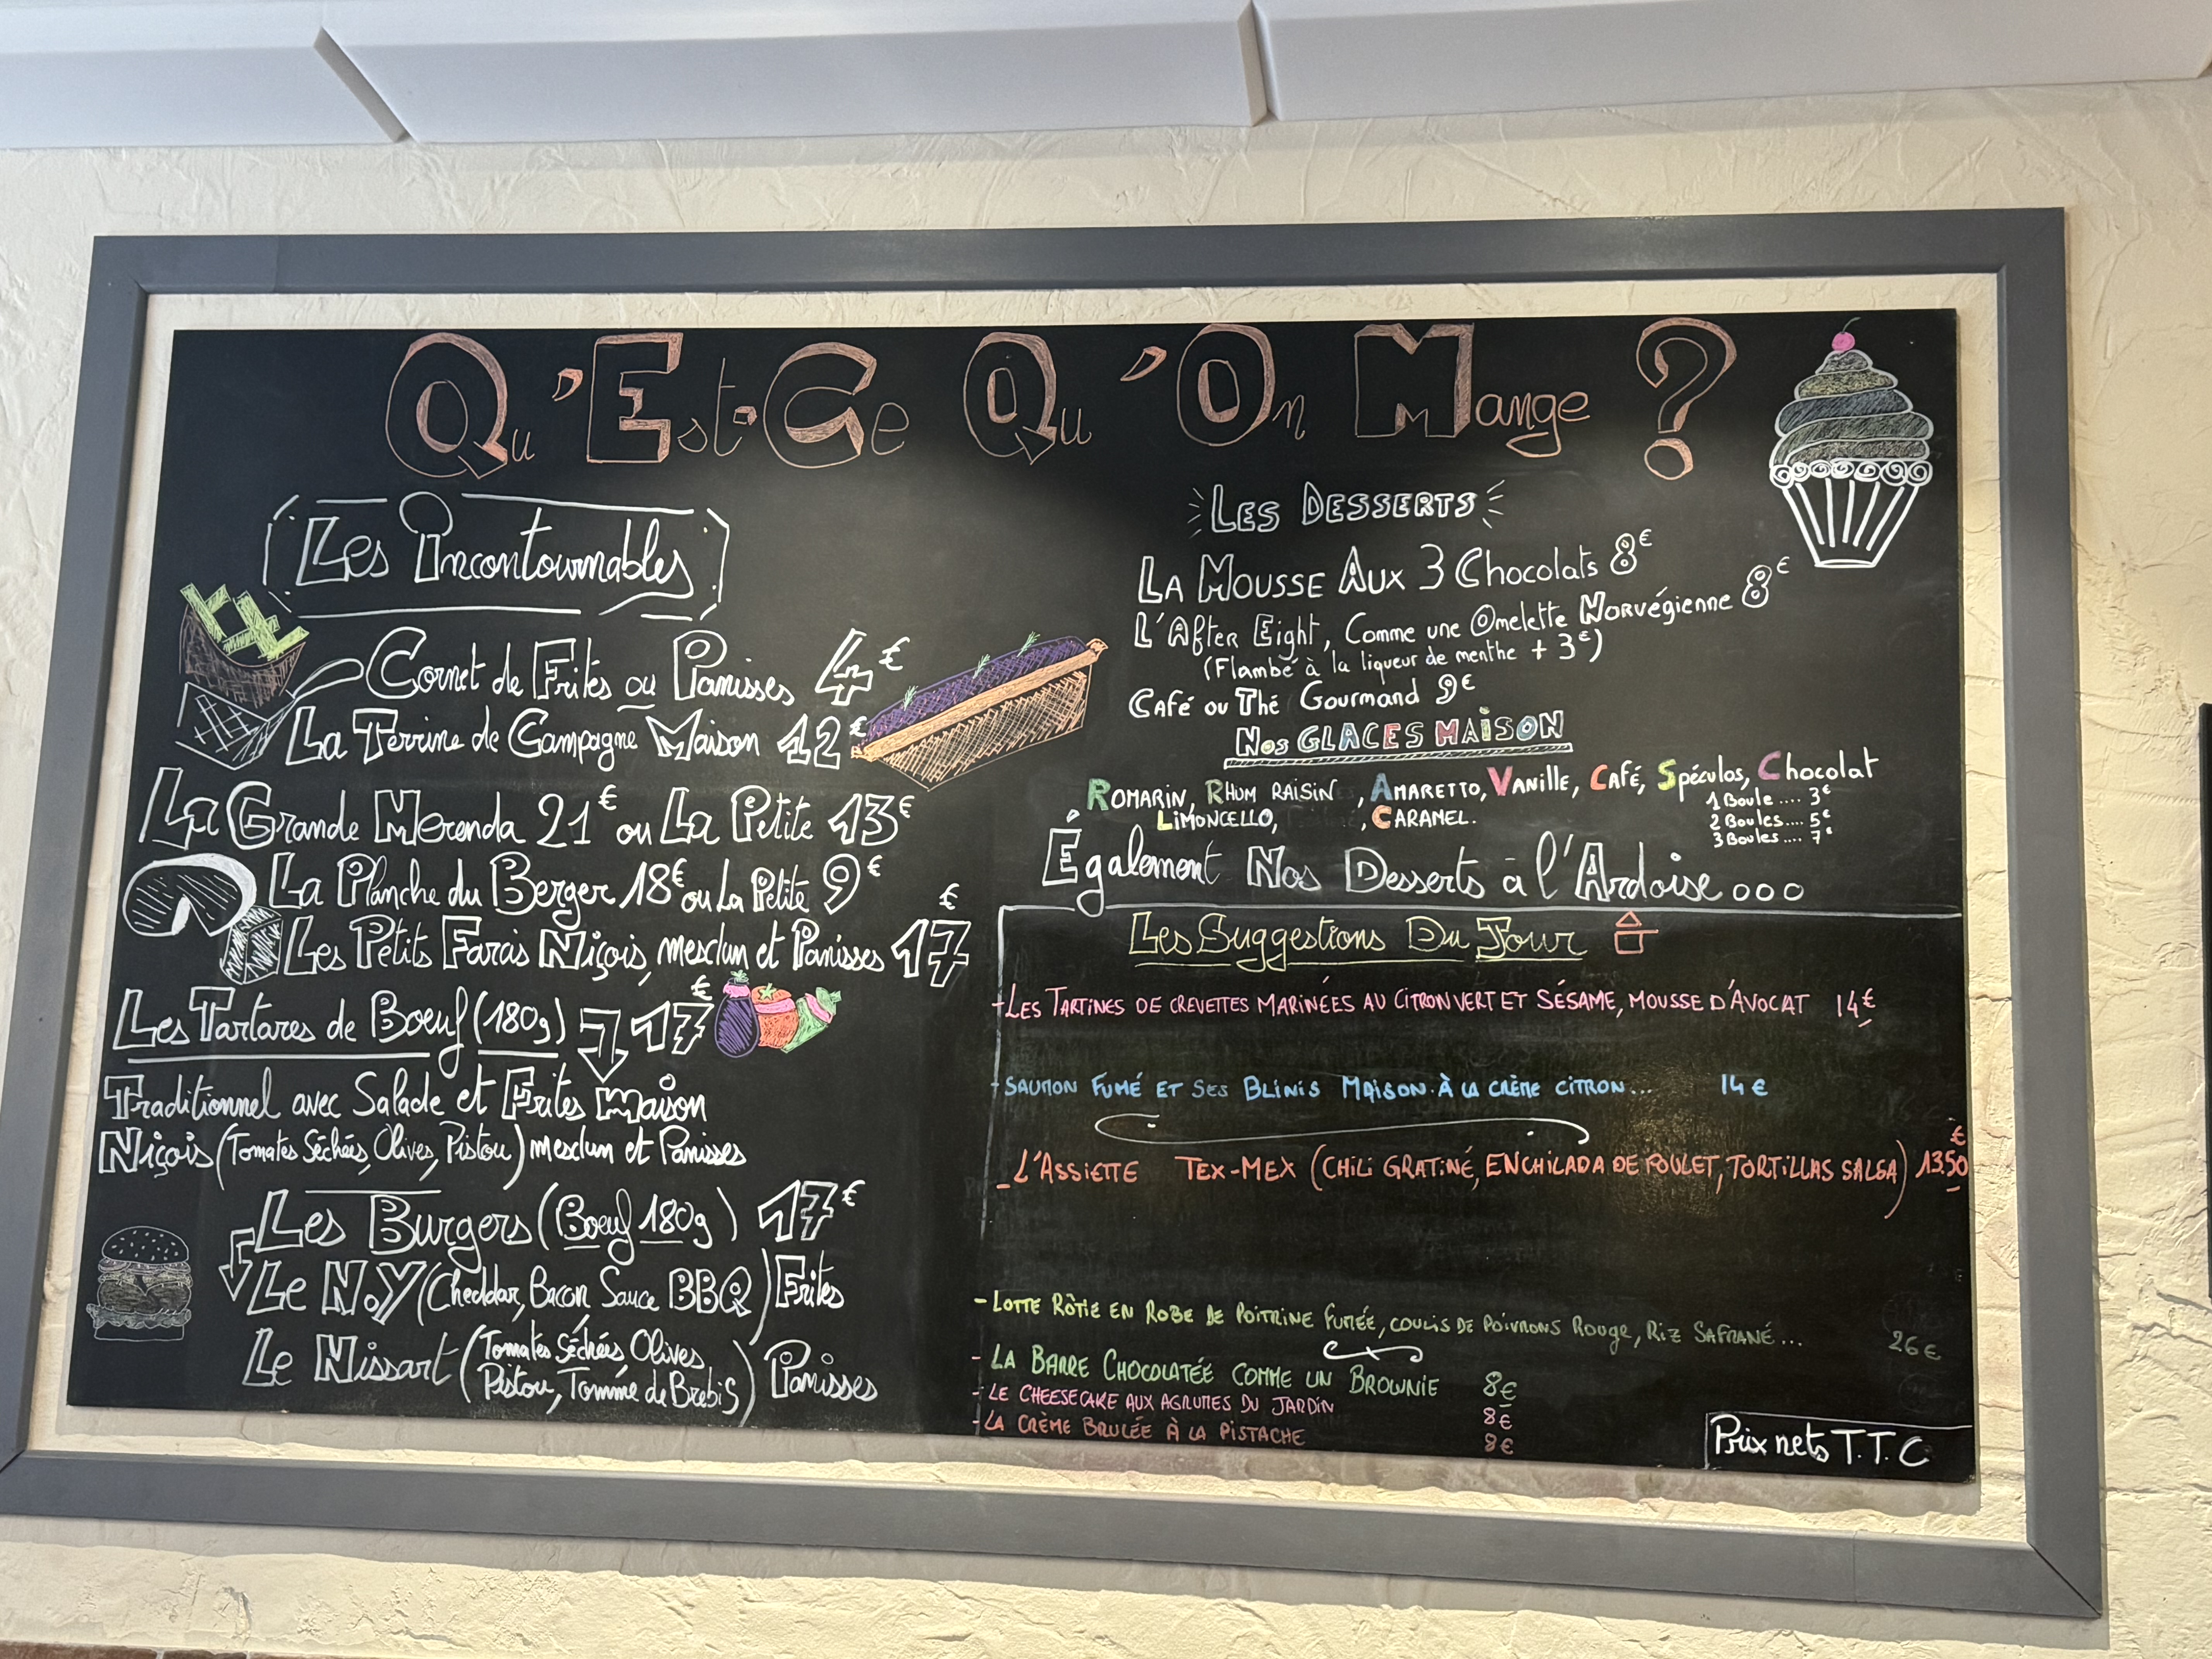 Qu'Est-Ce Qu'On Mange ?
Les Incontournables
Cornet de Frites ou Panisses 4€
La Terrine de Campagne Maison 12€
La Grande Merenda 21€ ou La Petite 13€
La Planche du Berger 18€ ou La Petite 9€
Les Petits Farcis Niçois, mesclun et Panisses 17€
Les Tartares de Boeuf (180g) 17€
Traditionnel avec Salade et Frites maison
Niçois (Tomates Séchées, Olives, Pistou) mesclun et Panisses
Les Burgers (Boeuf 180g) 17€
Le N.Y (Cheddar, Bacon, Sauce BBQ) Frites
Le Nissart (Tomates Séchées Olives
Pistou, Tomme de Brebis) Panisses
Les Desserts
La Mousse Aux 3 Chocolats 8€
L'After Eight, Comme une Omelette Norvégienne 8€
(Flambé à la liqueur de menthe + 3€)
Café ou Thé Gourmand 9€
Nos GLACES MAISON
Romarin, Rhum raisin, Amaretto, Vanille, Café, Spéculos, Chocolat
Limoncello, , Caramel.
1 Boule .... 3€
2 Boules.... 5€
3 Boules .... 7€
Également Nos Desserts à l'Ardoise ooo
Les Suggestions Du Jour
- Les Tartines de crevettes marinées au citron vert et sésame, mousse d'avocat 14€
- Saumon fumé et ses Blinis Maison à la crème citron... 14€
- L'Assiette Tex-Mex (chili gratiné, enchilada de poulet, tortillas salsa) 13.50€
- Lotte Rôtie en robe de poitrine fumée, coulis de poivrons rouge, riz safrané... 26€
- La Barre Chocolatée comme un Brownie 8€
- Le cheesecake aux agrumes du jardin 8€
- La crème brulée à la pistache 8€
Prix nets T.T.C